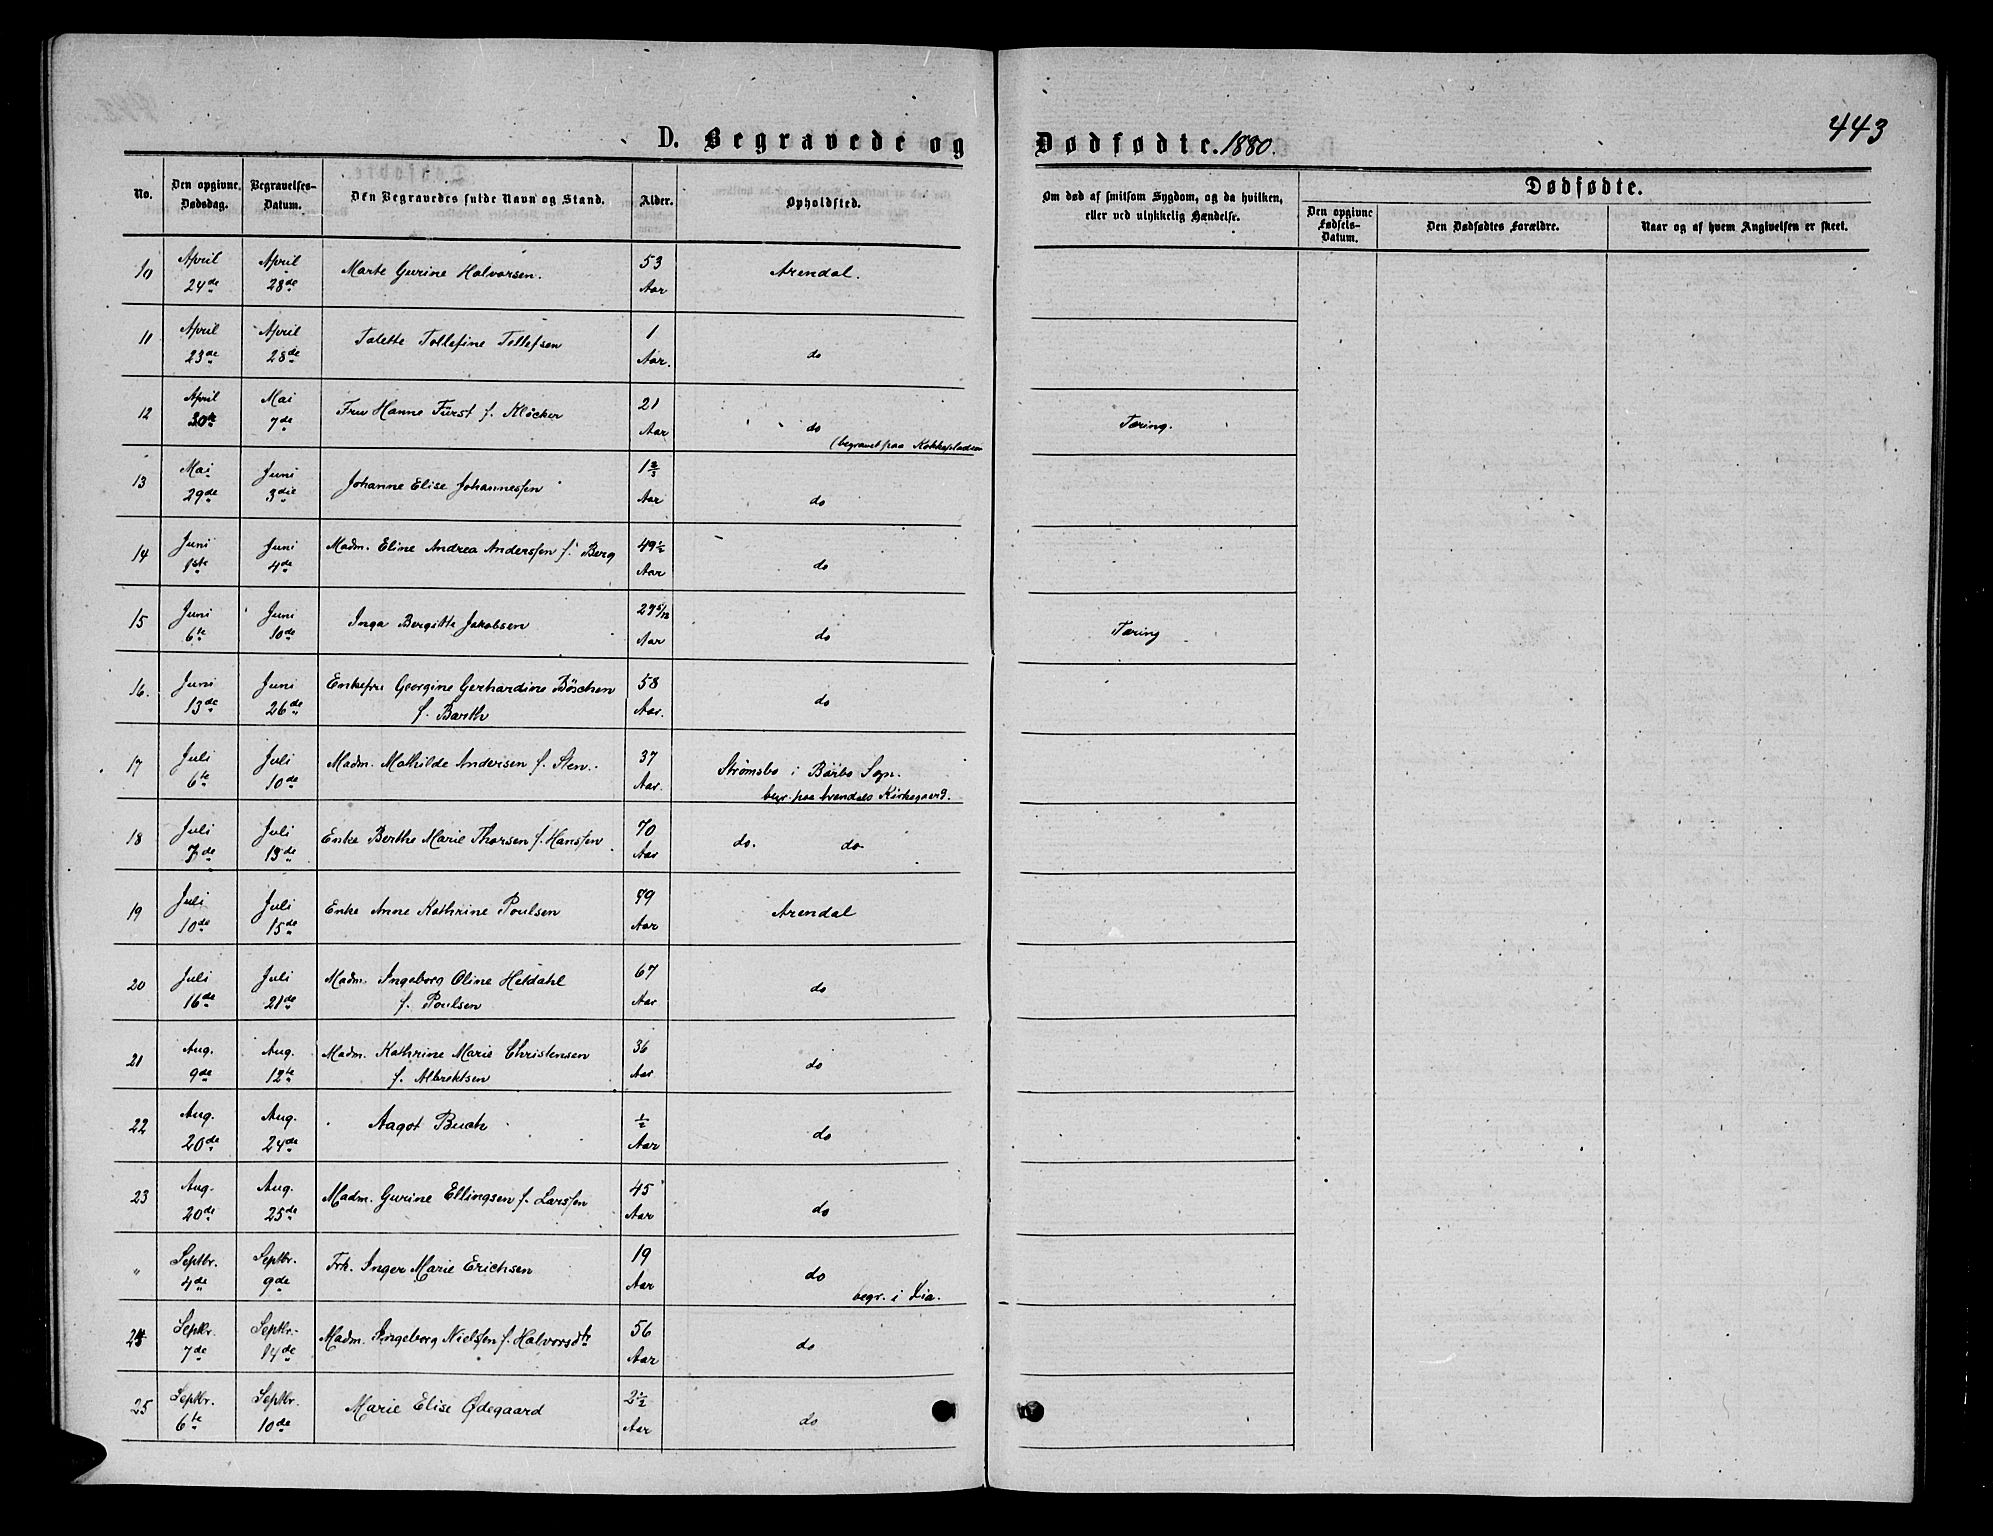 443
D. Begravede og Dødfødte. 1880.
No.
Den opgivne Dødsdag.
Begravelses-Datum.
Den Begravedes fulde Navn og Stand.
Alder.
Opholdsted.
Om død af smitsom Sygdom, og da hvilken, eller ved ulykkelig Hændelse.
Dødfødte.
Den opgivne Fødsels-Datum.
Den Dødfødtes Forældre.
Naar og af hvem Angivelsen er skeet.
10 April 24de April 28de Marte Gurine Halvorsen. 53 Aar Arendal.
11 April 23de April 28de Talette Tollefine Tollefsen 1 Aar. do
12 April 30te Mai 7de Fru Hanne Fürst f. Kløcker 21 Aar do Tæring.
(begravet paa Kokkepladsen
13 Mai 29de Juni 3die Johanne Elise Johannessen 1 2/3 Aar do
14 Juni 1ste Juni 4de Madm. Eline Andrea Anderssen f. Berg 49 1/2 Aar do
15 Juni 6te Juni 10de Inga Bergitte Jakobsen 29 5/12 Aar do Tæring
16. Juni 13de Juni 26de Enkefru Georgine Gerhardine Böschen 58 Aar. do
f. Barth
17 Juli 6te Juli 10de Madm. Mathilde Andersen f. Sten. 37 Aar. Strømsbo i Barbo Sogn.
begr. paa Arendals Kirkegaard.
18 Juli 7de Juli 13de Enke Berthe Marie Thorsen f. Hanssen 70 Aar do. do
19 Juli 10de Juli 15de Enke Anne Kathrine Poulsen 79 Aar Arendal
20 Juli 16de Juli 21de Madm. Ingeborg Oline Heldahl 67 Aar do
f. Poulsen
21 Aug. 9de Aug. 12te Madm. Kathrine Marie Christensen 36 Aar do
f. Albrektsen
22 Aug. 20de Aug. 24de Aagot Buch 1/2 Aar do
23 Aug. 20de Aug. 25de Madm. Gurine Ellingsen f. Larssen 45 Aar do
" Septbr. 4de Septbr. 9de Frk. Inger Marie Erichsen 19 Aar do
begr. i Lia.
24 Septbr. 7de Septbr. 14de Madm. Ingeborg Nielssen f. Halvorsdtr 56 Aar do
25 Septbr. 6te Septbr. 10de Marie Elise Ødegaard 2 1/2 Aar do